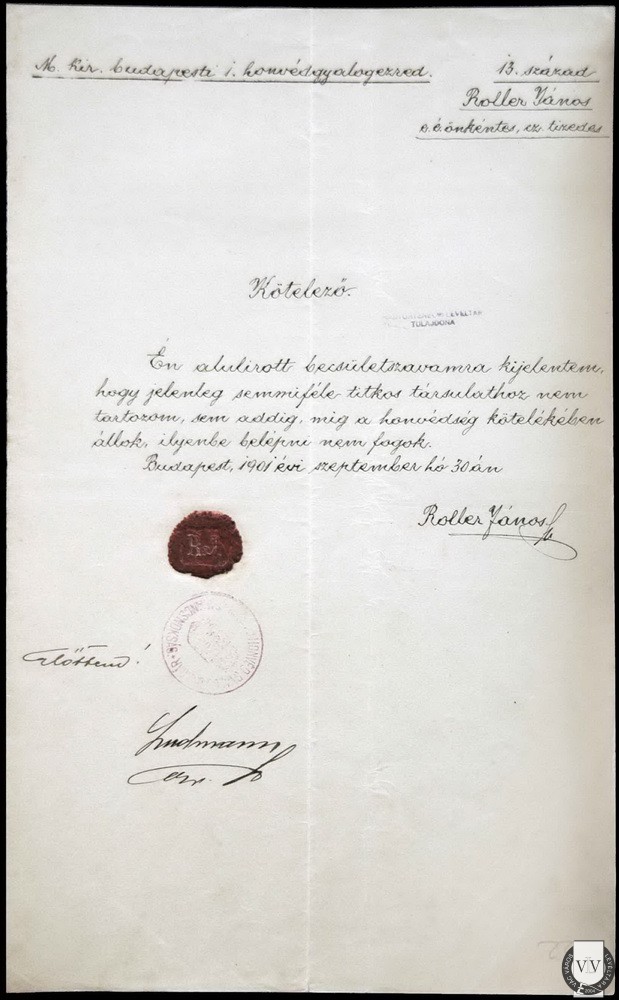 M. kir. budapesti 1. honvédgyalogezred. 13. század
Roller János
e. é. önkéntes, cz. tizedes
Kötelező.
TULAJDONA
Én alulírott becsületszavamra kijelentem,
hogy jelenleg semmiféle titkos társulathoz nem
tartozom, sem addig, míg a honvédség kötelékében
állok, ilyenbe belépni nem fogok.
Budapest, 1901 évi szeptember hó 30án
Roller János
R.J.
Előttem!
VÁC VÁROS LEVÉLTÁRA